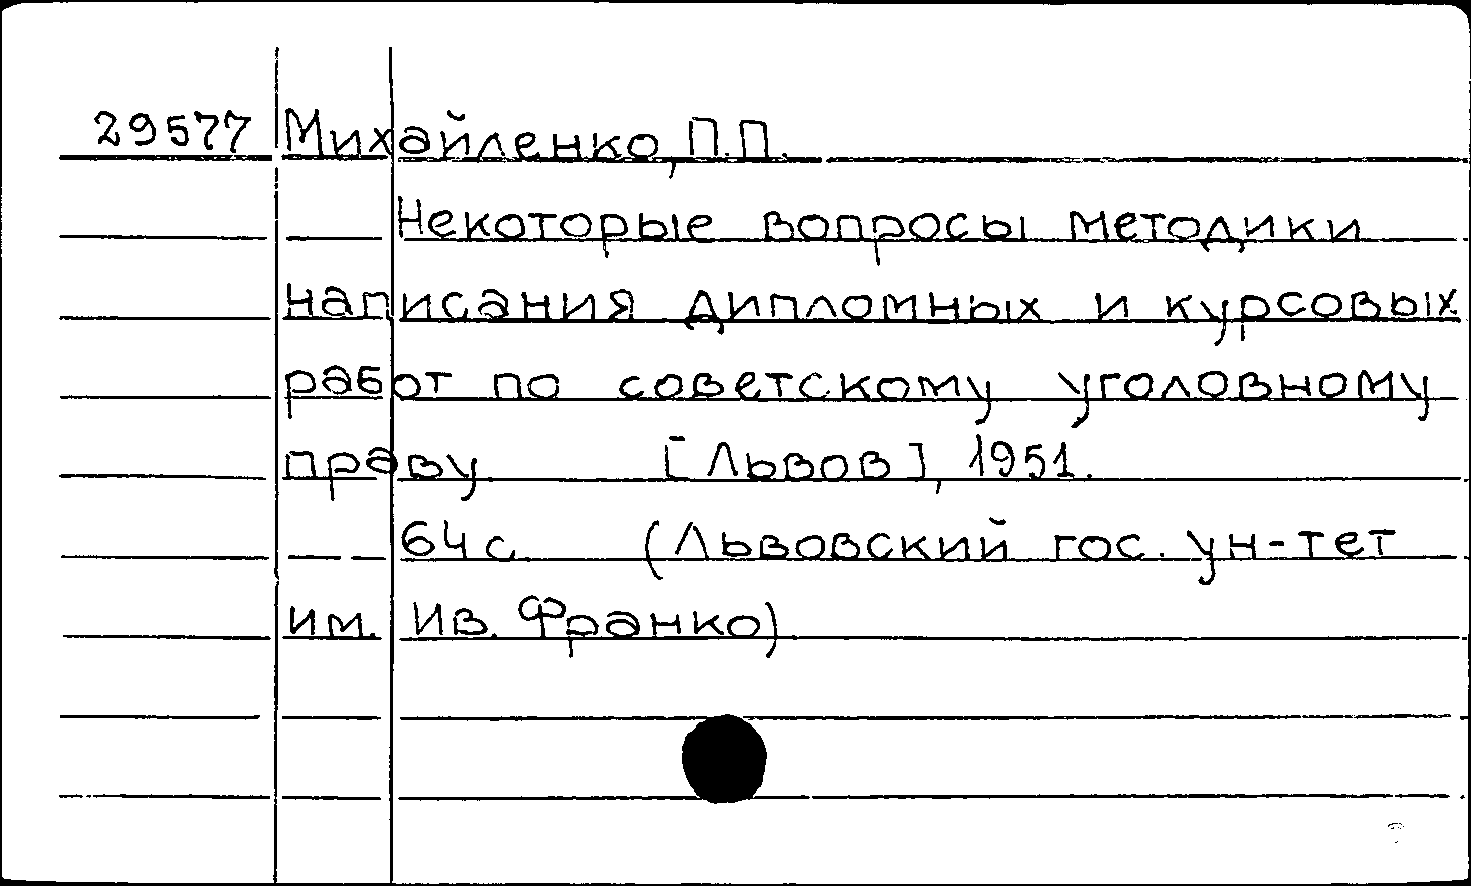 29577 Михайленко, П.П.
Некоторые вопросы методики
написания дипломных и курсовых
работ по советскому уголовному
праву. [Львов], 1951.
64 с. (Львовский гос. ун-тет
им. Ив. Франко)